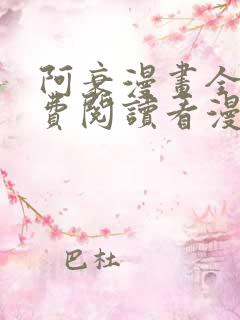 阿衰漫畫全
費閱讀看漫
巴杜